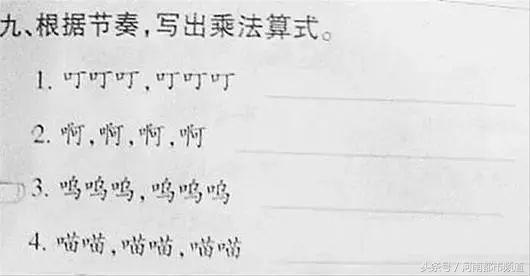 九、根据节奏,写出乘法算式。
1. 叮叮叮,叮叮叮
2. 啊,啊,啊,啊
3. 呜呜呜,呜呜呜
4. 喵喵,喵喵,喵喵
头条号/河南都市频道